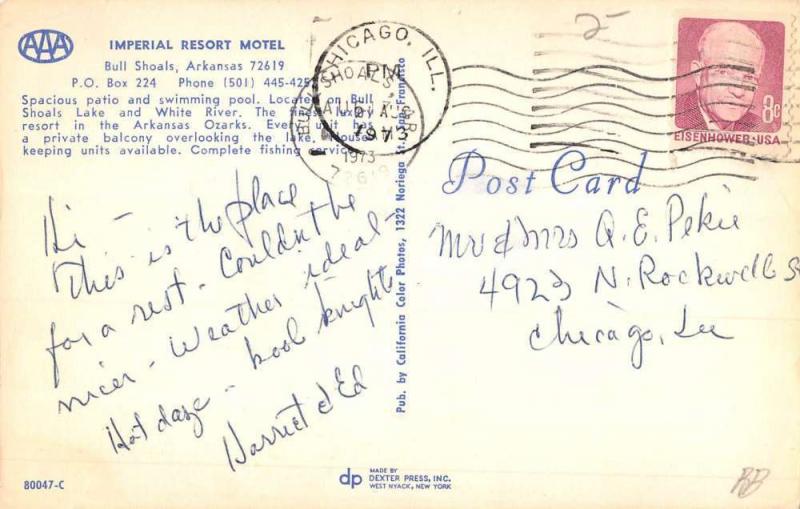 AAA
IMPERIAL RESORT MOTEL
Bull Shoals, Arkansas 72619
P.O. Box 224 Phone (501) 445-425
Spacious patio and swimming pool. Located on Bull
Shoals Lake and White River. The finest luxury
resort in the Arkansas Ozarks. Every unit has
a private balcony overlooking the lake. House-
keeping units available. Complete fishing service.
CHICAGO, ILL.
PM
1973
BULL SHOALS
AR
1973
72619
2
8c
EISENHOWER·USA
Post Card
Hi -
This is the place
for a rest. Couldn't be
nicer - Weather ideal -
Hot daze - kool knights
Harriet & Ed
Mr & Mrs Q. E. Pekie
4923 N. Rockwell S
Chicago, Ill
Pub. by California Color Photos, 1322 Noriega St., San Francisco
80047-C
dp
MADE BY
DEXTER PRESS, INC.
WEST NYACK, NEW YORK